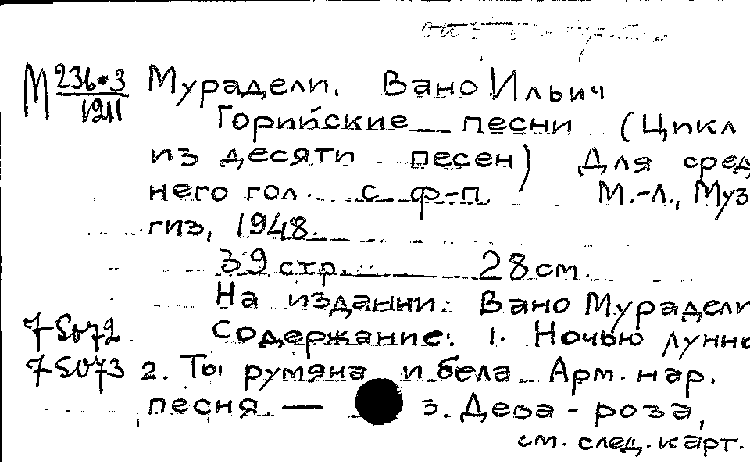 М 236•3 Мурадели. Вано Ильич
1211 Горийские песни (Цикл
из десяти песен) Для сред
него гол. с ф-п. М.-Л., Муз
гиз, 1948.
39 стр. 28 см.
На издании: Вано Мурадели
7-5072 Содержание: 1. Ночью лунно
7-5073 2. Ты румяна и бела. Арм. нар.
песня. — 3. Дева-роза,
см. след. карт.